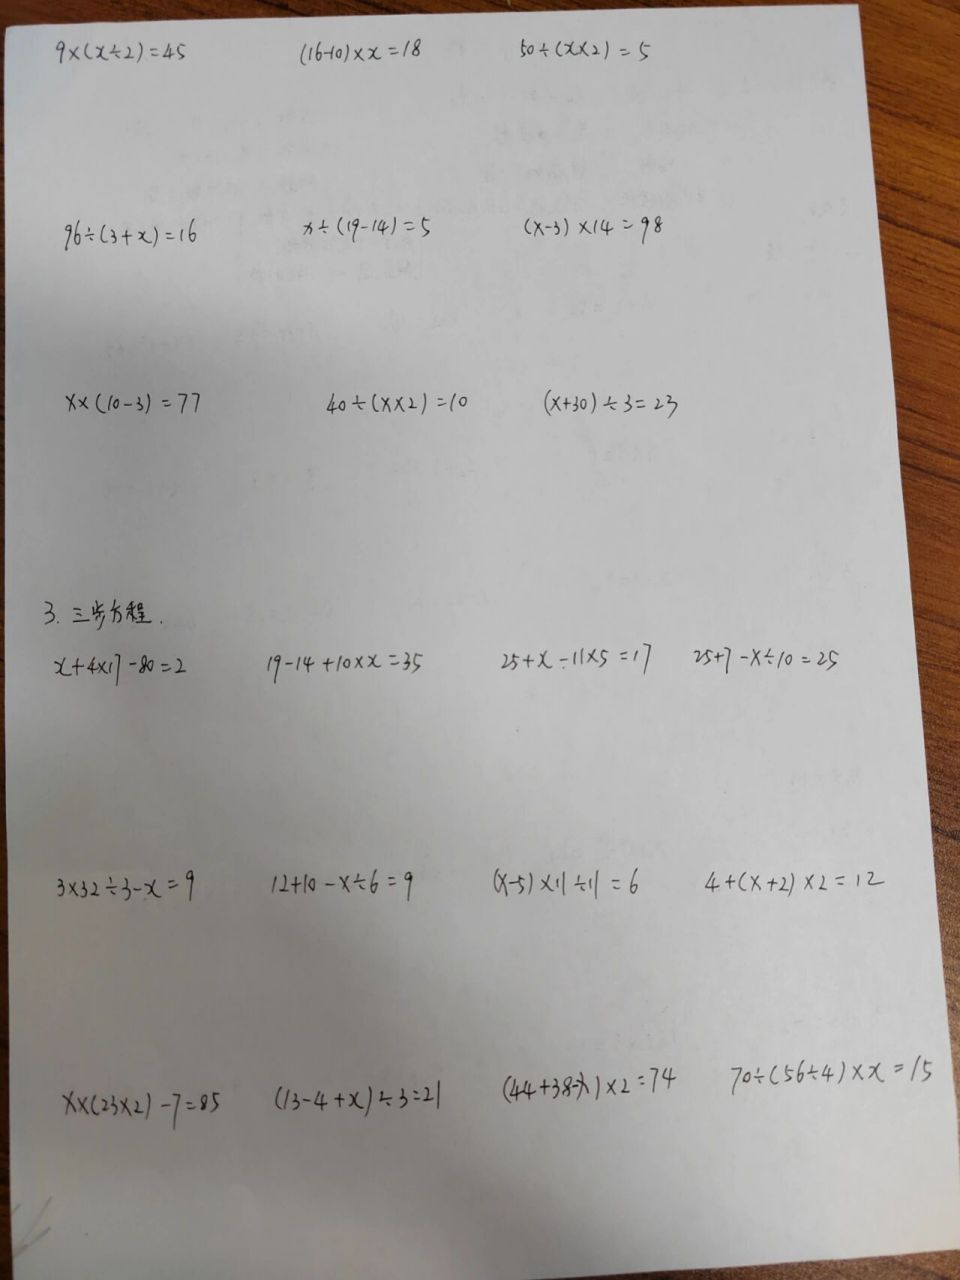 9×(x÷2)=45 (16-10)×x=18 50÷(x×2)=5
96÷(3+x)=16 x÷(19-14)=5 (x-3)×14=98
x×(10-3)=77 40÷(x×2)=10 (x+30)÷3=23
3. 三步方程.
x+4×17-80=2 19-14+10×x=35 25+x-11×5=17 25+7-x÷10=25
3×32÷3-x=9 12+10-x÷6=9 (x-5)×11÷11=6 4+(x+2)×2=12
x×(23×2)-7=85 (13-4+x)÷3=21 (44+38-x)×2=74 70÷(56÷4)×x=15